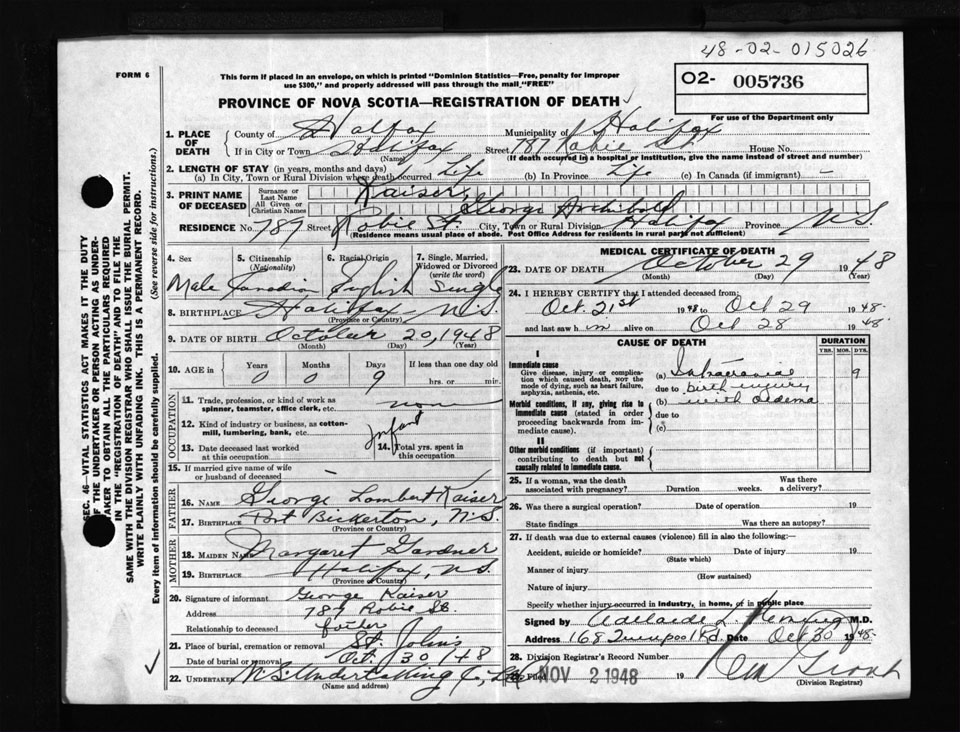 48-02-015026
FORM 6
This form if placed in an envelope, on which is printed "Dominion Statistics—Free, penalty for improper
use $300," and properly addressed will pass through the mail "FREE"
02- 005736
PROVINCE OF NOVA SCOTIA—REGISTRATION OF DEATH
For use of the Department only
1. PLACE OF DEATH
County of Halifax Municipality of Halifax
If in City or Town Halifax Street 787 Robie St. House No.
(Name) (If death occurred in a hospital or institution, give the name instead of street and number)
2. LENGTH OF STAY (in years, months and days)
(a) In City, Town or Rural Division where death occurred Life (b) In Province Life (c) In Canada (if immigrant) -
3. PRINT NAME OF DECEASED
Surname or Last Name Kaiser,
All Given or Christian Names George Archibald
RESIDENCE No. 789 Street Robie St. City, Town or Rural Division Halifax Province N.S.
(Residence means usual place of abode. Post Office Address for residents in rural parts not sufficient)
4. Sex Male
5. Citizenship (Nationality) Canadian
6. Racial Origin English
7. Single, Married, Widowed or Divorced (write the word) Single
8. BIRTHPLACE Halifax N.S.
(Province or Country)
9. DATE OF BIRTH October 20, 1948
(Month) (Day) (Year)
10. AGE in Years 0 Months 0 Days 9 If less than one day old
hrs. or min.
OCCUPATION
11. Trade, profession, or kind of work as
spinner, teamster, office clerk, etc. non
12. Kind of industry or business, as cotton-
mill, lumbering, bank, etc. Infant
13. Date deceased last worked
at this occupation
14. Total yrs. spent in
this occupation
15. If married give name of wife
or husband of deceased -
FATHER
16. NAME George Lambert Kaiser
17. BIRTHPLACE Port Bickerton, N.S.
(Province or Country)
MOTHER
18. MAIDEN NAME Margaret Gardner
19. BIRTHPLACE Halifax, N.S.
(Province or Country)
20. Signature of informant George Kaiser
Address 787 Robie St.
Relationship to deceased father
21. Place of burial, cremation or removal St. John's
Date of burial or removal Oct. 30/48
22. UNDERTAKER N.S. Undertaking Co, Ltd
(Name and address)
MEDICAL CERTIFICATE OF DEATH
23. DATE OF DEATH October 29 1948
(Month) (Day) (Year)
24. I HEREBY CERTIFY that I attended deceased from
Oct. 21st 1948 to Oct 29 1948
and last saw him alive on Oct 28 1948
CAUSE OF DEATH
DURATION
YRS. MOS. DYS.
I
Immediate cause
Give disease, injury or complica-
tion which caused death, not the
mode of dying, such as heart failure,
asphyxia, asthenia, etc.
(a) Intracranial 9
due to birth injury
Morbid conditions, if any, giving rise to
immediate cause (stated in order
proceeding backwards from im-
mediate cause).
(b) with oedema
due to
(c)
II
Other morbid conditions (if important)
contributing to death but not
causally related to immediate cause.
25. If a woman, was the death
associated with pregnancy? Duration weeks. Was there
a delivery?
26. Was there a surgical operation? Date of operation 19
State findings Was there an autopsy?
27. If death was due to external causes (violence) fill in also the following:—
Accident, suicide or homicide? Date of injury 19
(State which)
Manner of injury
(How sustained)
Nature of injury
Specify whether injury occurred in industry, in home, or in public place
Signed by Adelaide L. Fleming M.D.
Address 168 Quinpool Rd. Date Oct 30 1948
28. Division Registrar's Record Number
29. Filed NOV 2 1948 19
(Division Registrar)
SEC. 46—VITAL STATISTICS ACT MAKES IT THE DUTY
OF THE UNDERTAKER OR PERSON ACTING AS UNDER-
TAKER TO OBTAIN ALL THE PARTICULARS REQUIRED
IN THE "REGISTRATION OF DEATH" AND TO FILE THE
SAME WITH THE DIVISION REGISTRAR WHO SHALL ISSUE THE BURIAL PERMIT.
WRITE PLAINLY WITH UNFADING INK. THIS IS A PERMANENT RECORD.
Every item of information should be carefully supplied. (See reverse side for instructions.)